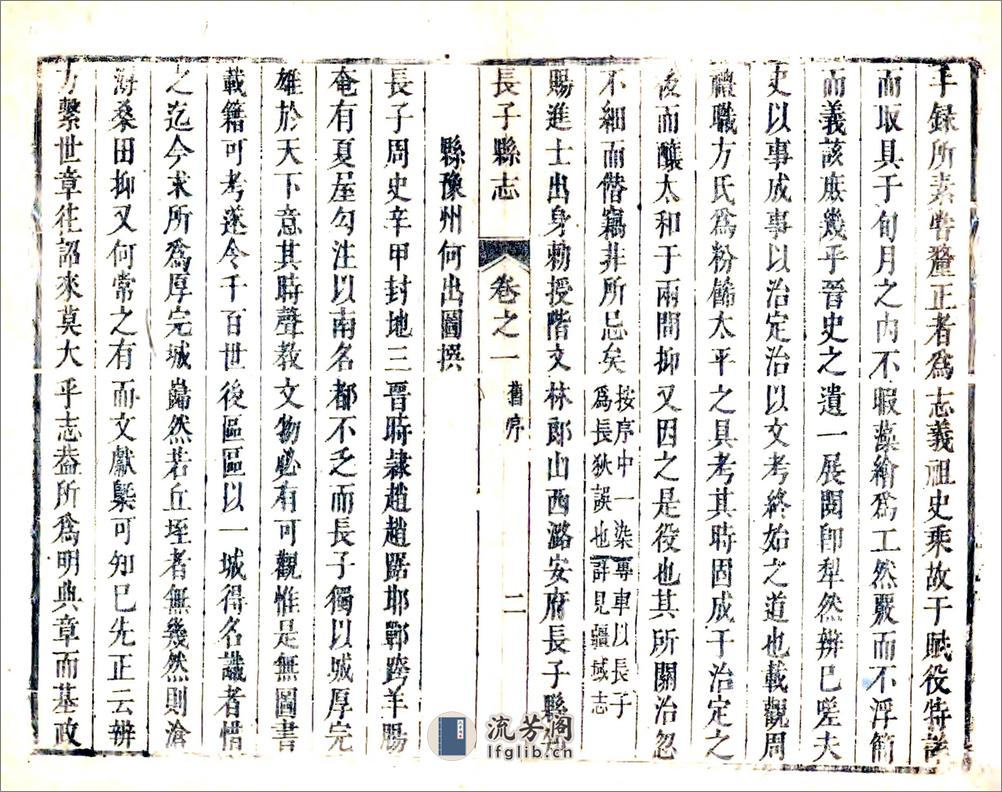 手錄所素嘗釐正者爲志義祖史乘故于賦役特詳
而取具于旬月之內不暇藻繪爲工然嚴而不浮簡
而義該庶幾乎晉史之遺一展閱卽犁然辨巳嗟夫
史以事成事以治定治以文考終始之道也載觀周
禮職方氏爲粉餙太平之具考其時固成于治定之
後而釀太和于兩間抑又因之是役也其所關治忽
不細而僭竊非所忌矣按序中一染專車以長子
爲長狄誤也詳見疆域志
賜進士出身勅授階文林郎山西潞安府長子縣知
長子縣志
卷之一
舊序
二
縣豫州何出圖撰
長子周史辛甲封地三晉時隷趙趙踞邯鄲跨羊腸
奄有夏屋勾注以南名都不乏而長子獨以城厚完
雄於天下意其時聲教文物必有可觀惟是無圖書
載籍可考遂令千百世後區區以一城得名識者惜
之迄今求所爲厚完城巋然若丘垤者無幾然則滄
海桑田抑又何常之有而文獻槩可知巳先正云辨
方繫世章往詔來莫大乎志葢所爲明典章而基政
流芳阁
lfglib.cn